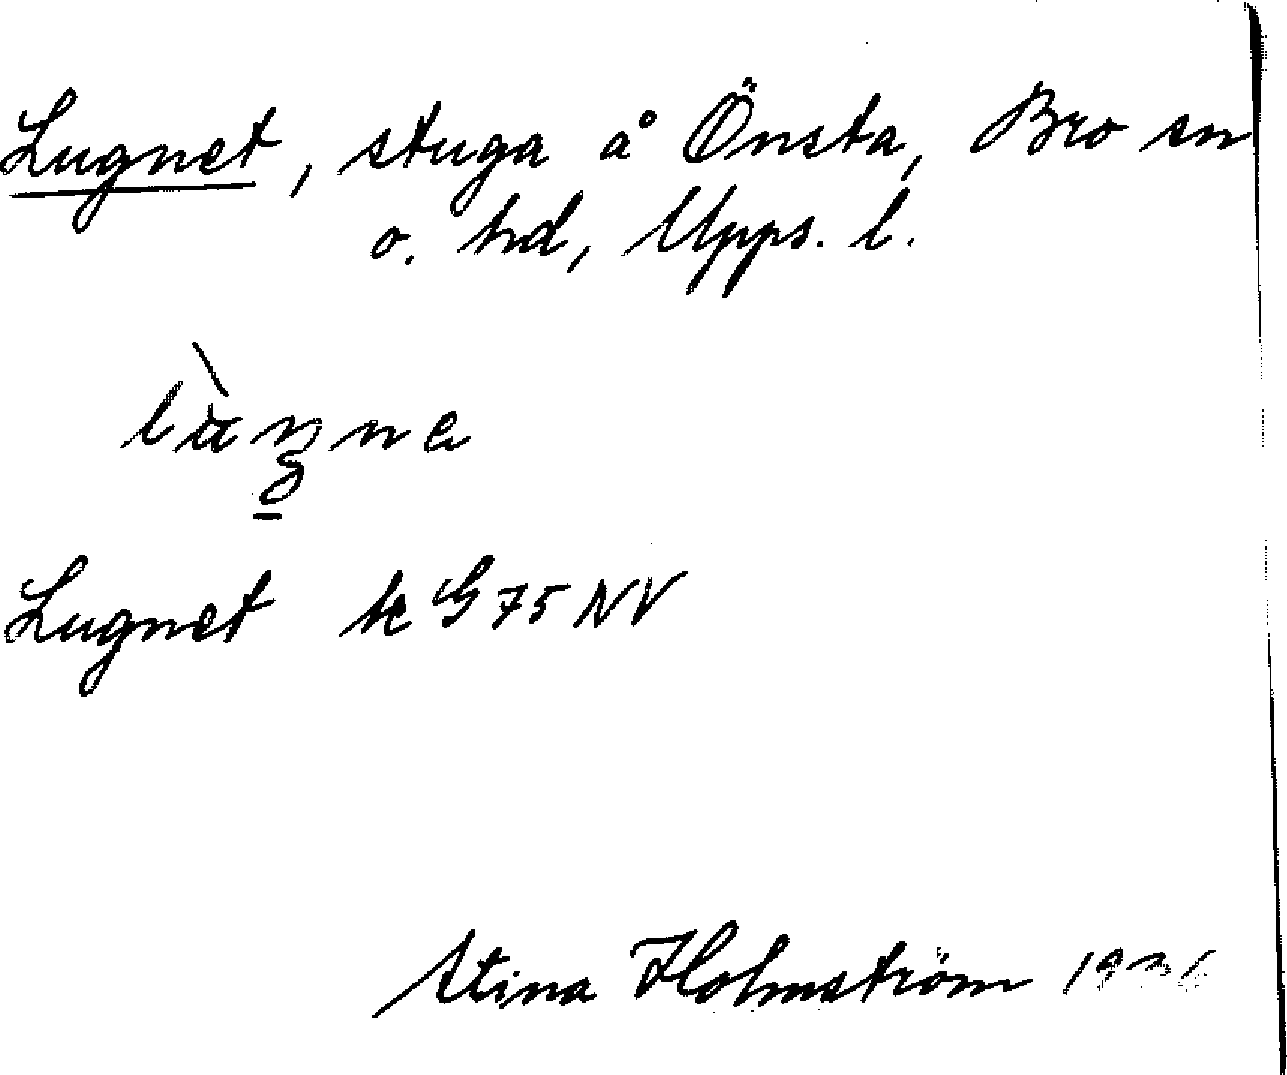 Lugnet, stuga å Önsta, Bro sn
o. hd, Upps. l.
Lugnet k G 75 NV
Stina Holmström 1936